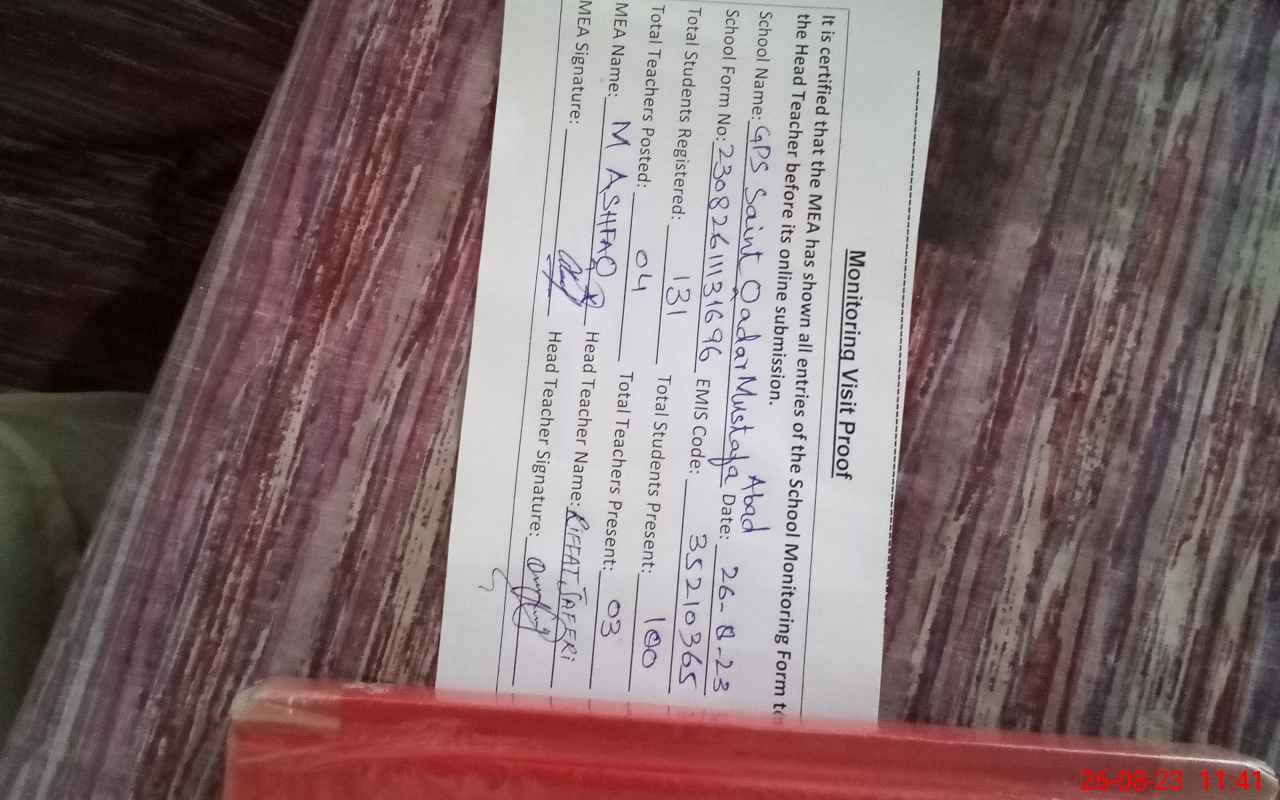 Monitoring Visit Proof
It is certified that the MEA has shown all entries of the School Monitoring Form to
the Head Teacher before its online submission.
School Name: GPS Saint Qadar Mustafa Abad Date: 26-8-23
School Form No: 23082611131696 EMIS Code: 35210365
Total Students Registered: 131 Total Students Present: 100
Total Teachers Posted: 04 Total Teachers Present: 03
MEA Name: M ASHFAQ Head Teacher Name: RIFFAT JAFFRI
MEA Signature: Head Teacher Signature:
26-08-23 11:41